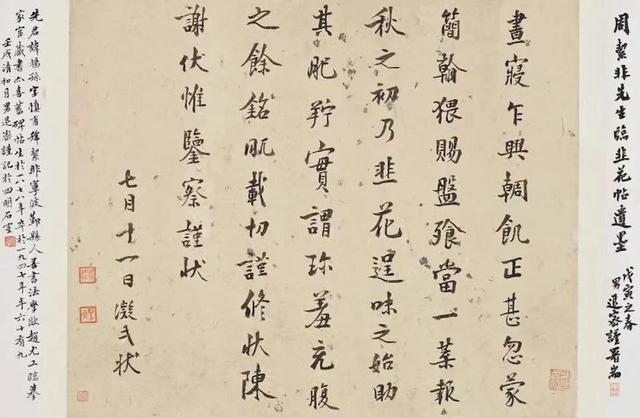 周絜非先生臨韭花帖遺墨
戊寅之春
男退密謹署耑
晝寢乍興輖飢正甚忽蒙
簡翰猥賜盤飧當一葉報
秋之初乃韭花逞味之始助
其肥羜實謂珍羞充腹
之餘銘肌載切謹修狀陳
謝伏惟鑒察謹狀
七月十一日凝式狀
先君諱孫字慎甫號絜非寧波鄞縣人善書法學歐趙尤工臨摹
家富藏書亦喜蓄碑帖生於一八七八年卒於一九四七年年六十有九
壬戌清和月男退密謹記於四明石室